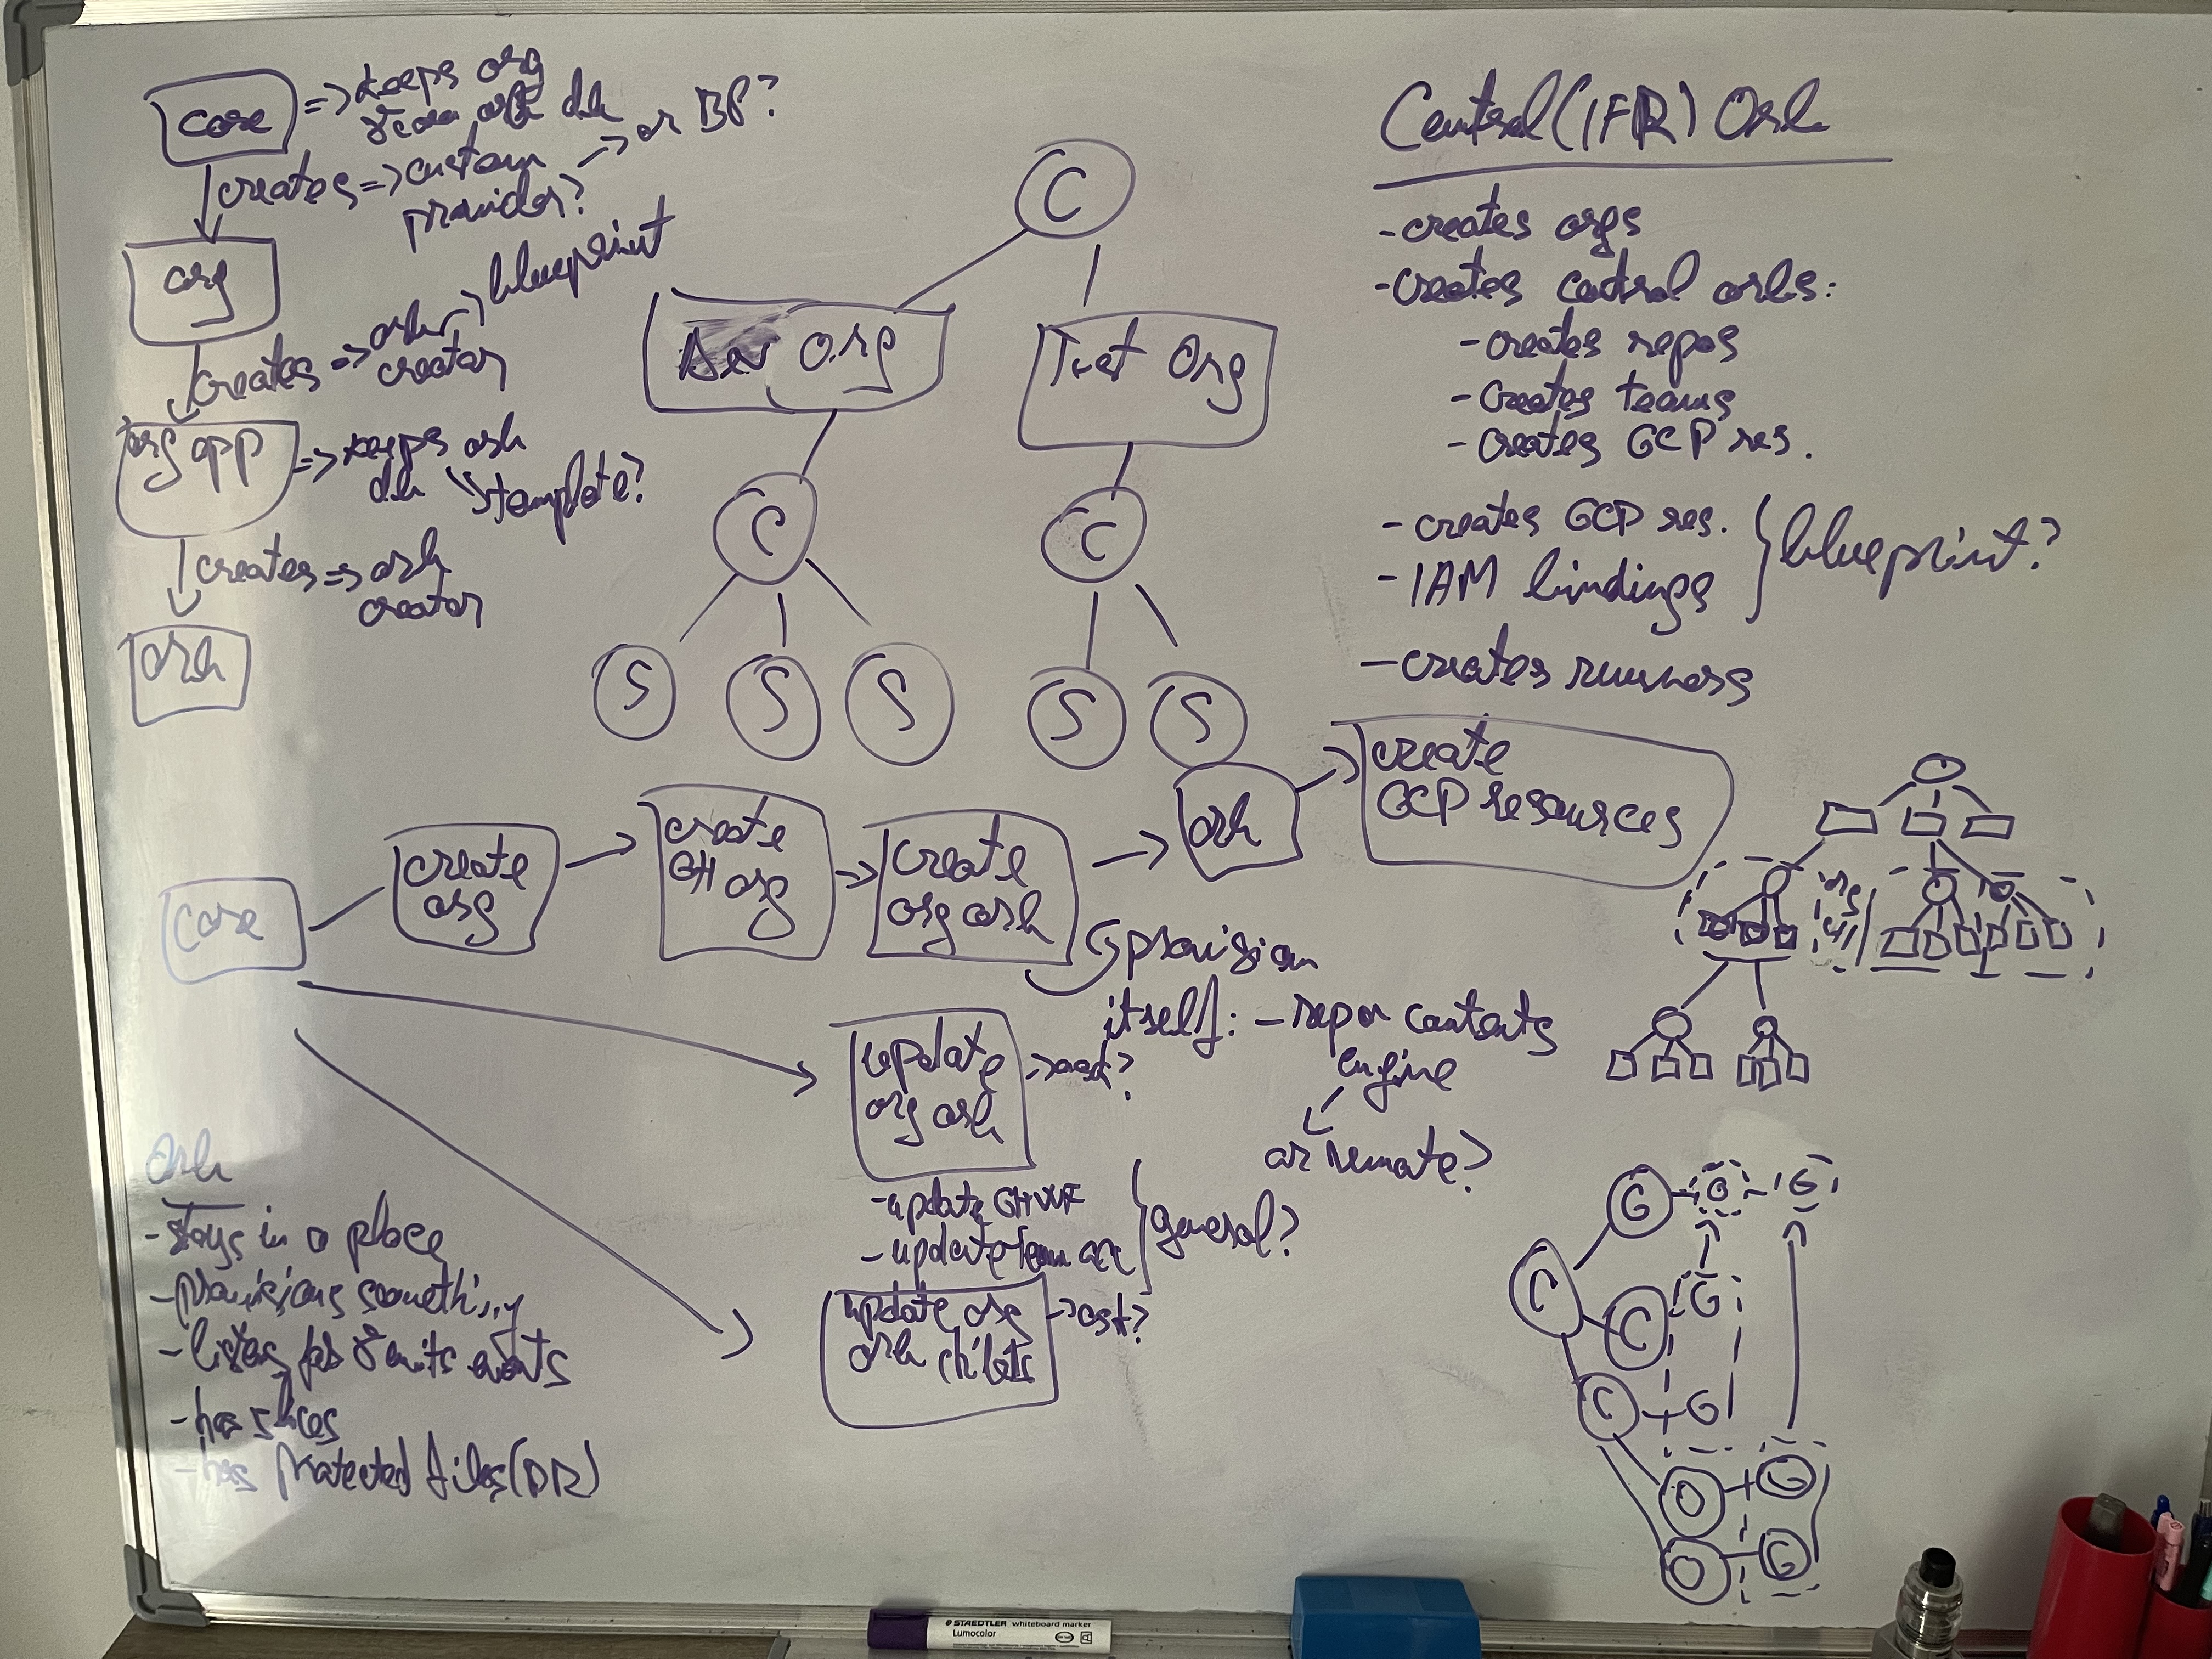 core
=> keeps org
& core orh db
creates => custom
provider?
-> or BP?
org
creates => orh
creator
-> blueprint
org app
=> keeps orh
db
template?
creates => orh
creator
orh
C
Dev Org
Test Org
C
C
S
S
S
S
S
Central (IFR) Orh
- creates orgs
- creates central orhs:
- creates repos
- creates teams
- creates GCP res.
- creates GCP res.
- IAM bindings
blueprint?
- creates runners
core
create
org
create
GH org
create
org orh
orh
create
GCP resources
provision
itself: - repo contents
engine
or remote?
update
org orh
-> ask?
- update GH WF
- update team acc
general?
update org
orh childs
-> ask?
Orh
- stays in a place
- provisions something
- listens for & emits events
- has slices
- has protected files (DR)
org
C
G
G
G
C
G
C
G
O
G
O
G
STAEDTLER whiteboard marker
Lumocolor